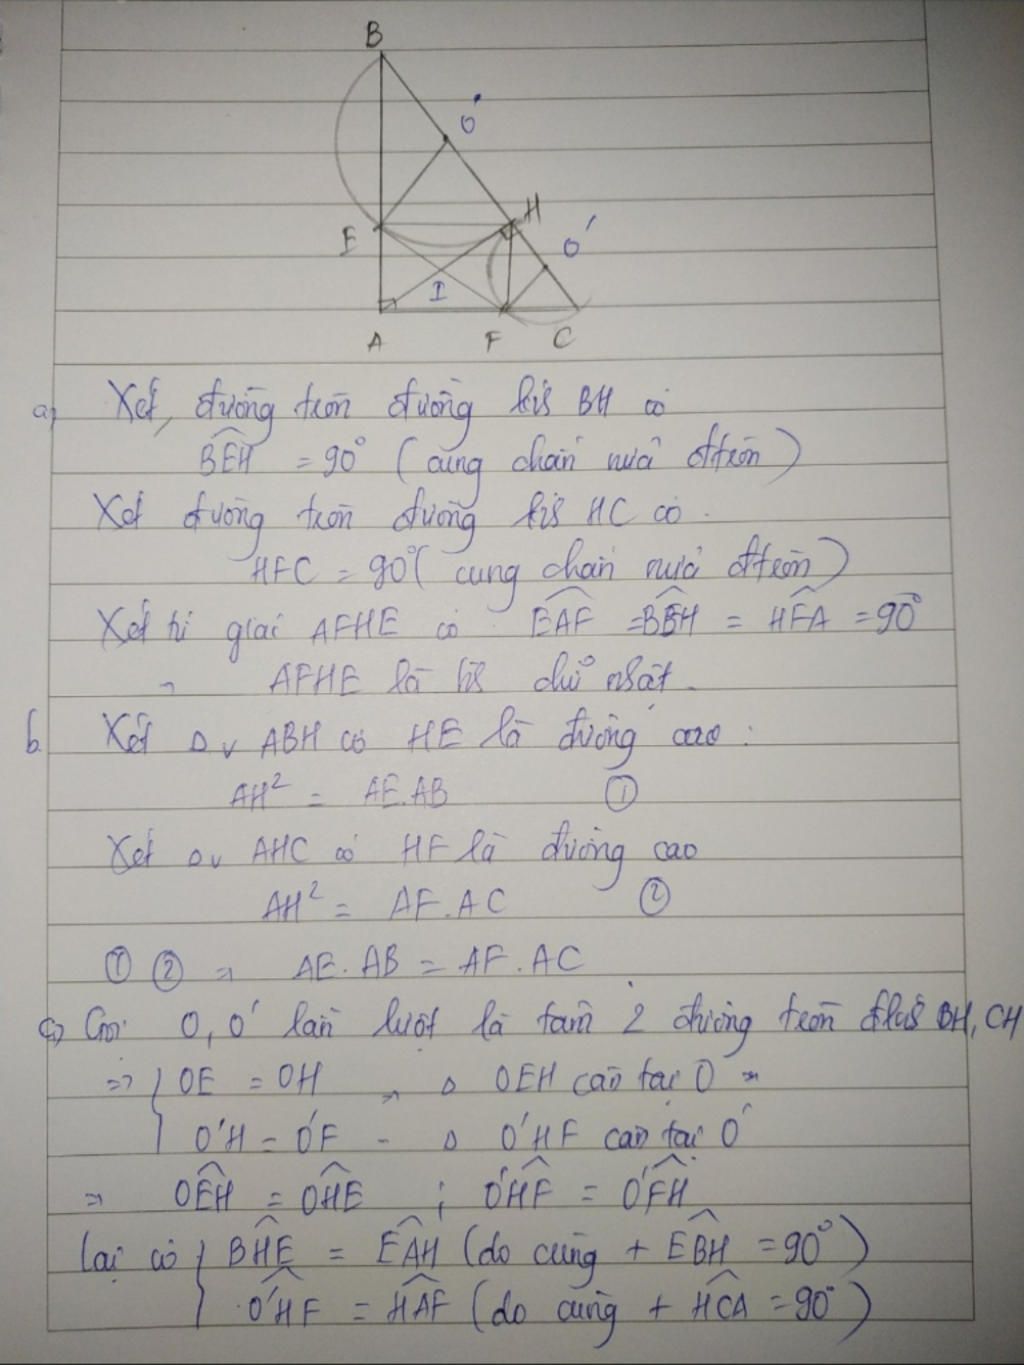 B
O
H
O'
E
I
A F C
a) Xét đường tròn đường kís BH có
BEH = 90° (cùng chắn nửa đtròn)
Xét đường tròn đường kís HC có.
HFC = 90° (cung chắn nửa đtròn)
Xét tứ giác AFHE có EAF = BEH = HFA = 90°
⇒ AFHE là hs chữ nhật.
b. Xét Δv ABH có HE là đường cao:
AH² = AE.AB ①
Xét Δv AHC có HF là đường cao
AH² = AF.AC ②
① ② ⇒ AE.AB = AF.AC
c) Gọi O, O' lần lượt là tâm 2 đường tròn đkís BH, CH
⇒ { OE = OH ⇒ Δ OEH cân tại O ⇒
O'H = O'F - Δ O'HF cân tại O'
⇒ OEH = OHE ; O'HF = O'FH
Lại có { BHE = EAH (do cùng + EBH = 90°)
O'HF = HAF (do cùng + HCA = 90°)